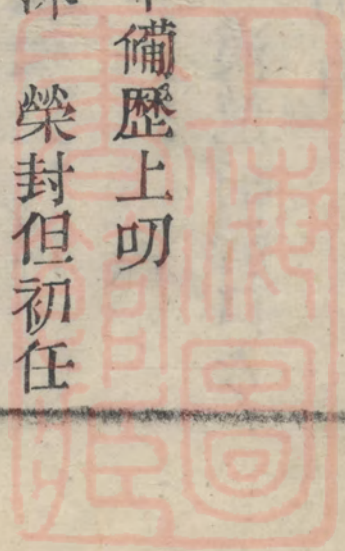 備歷上叨
榮封但初任
上海圖
書館藏